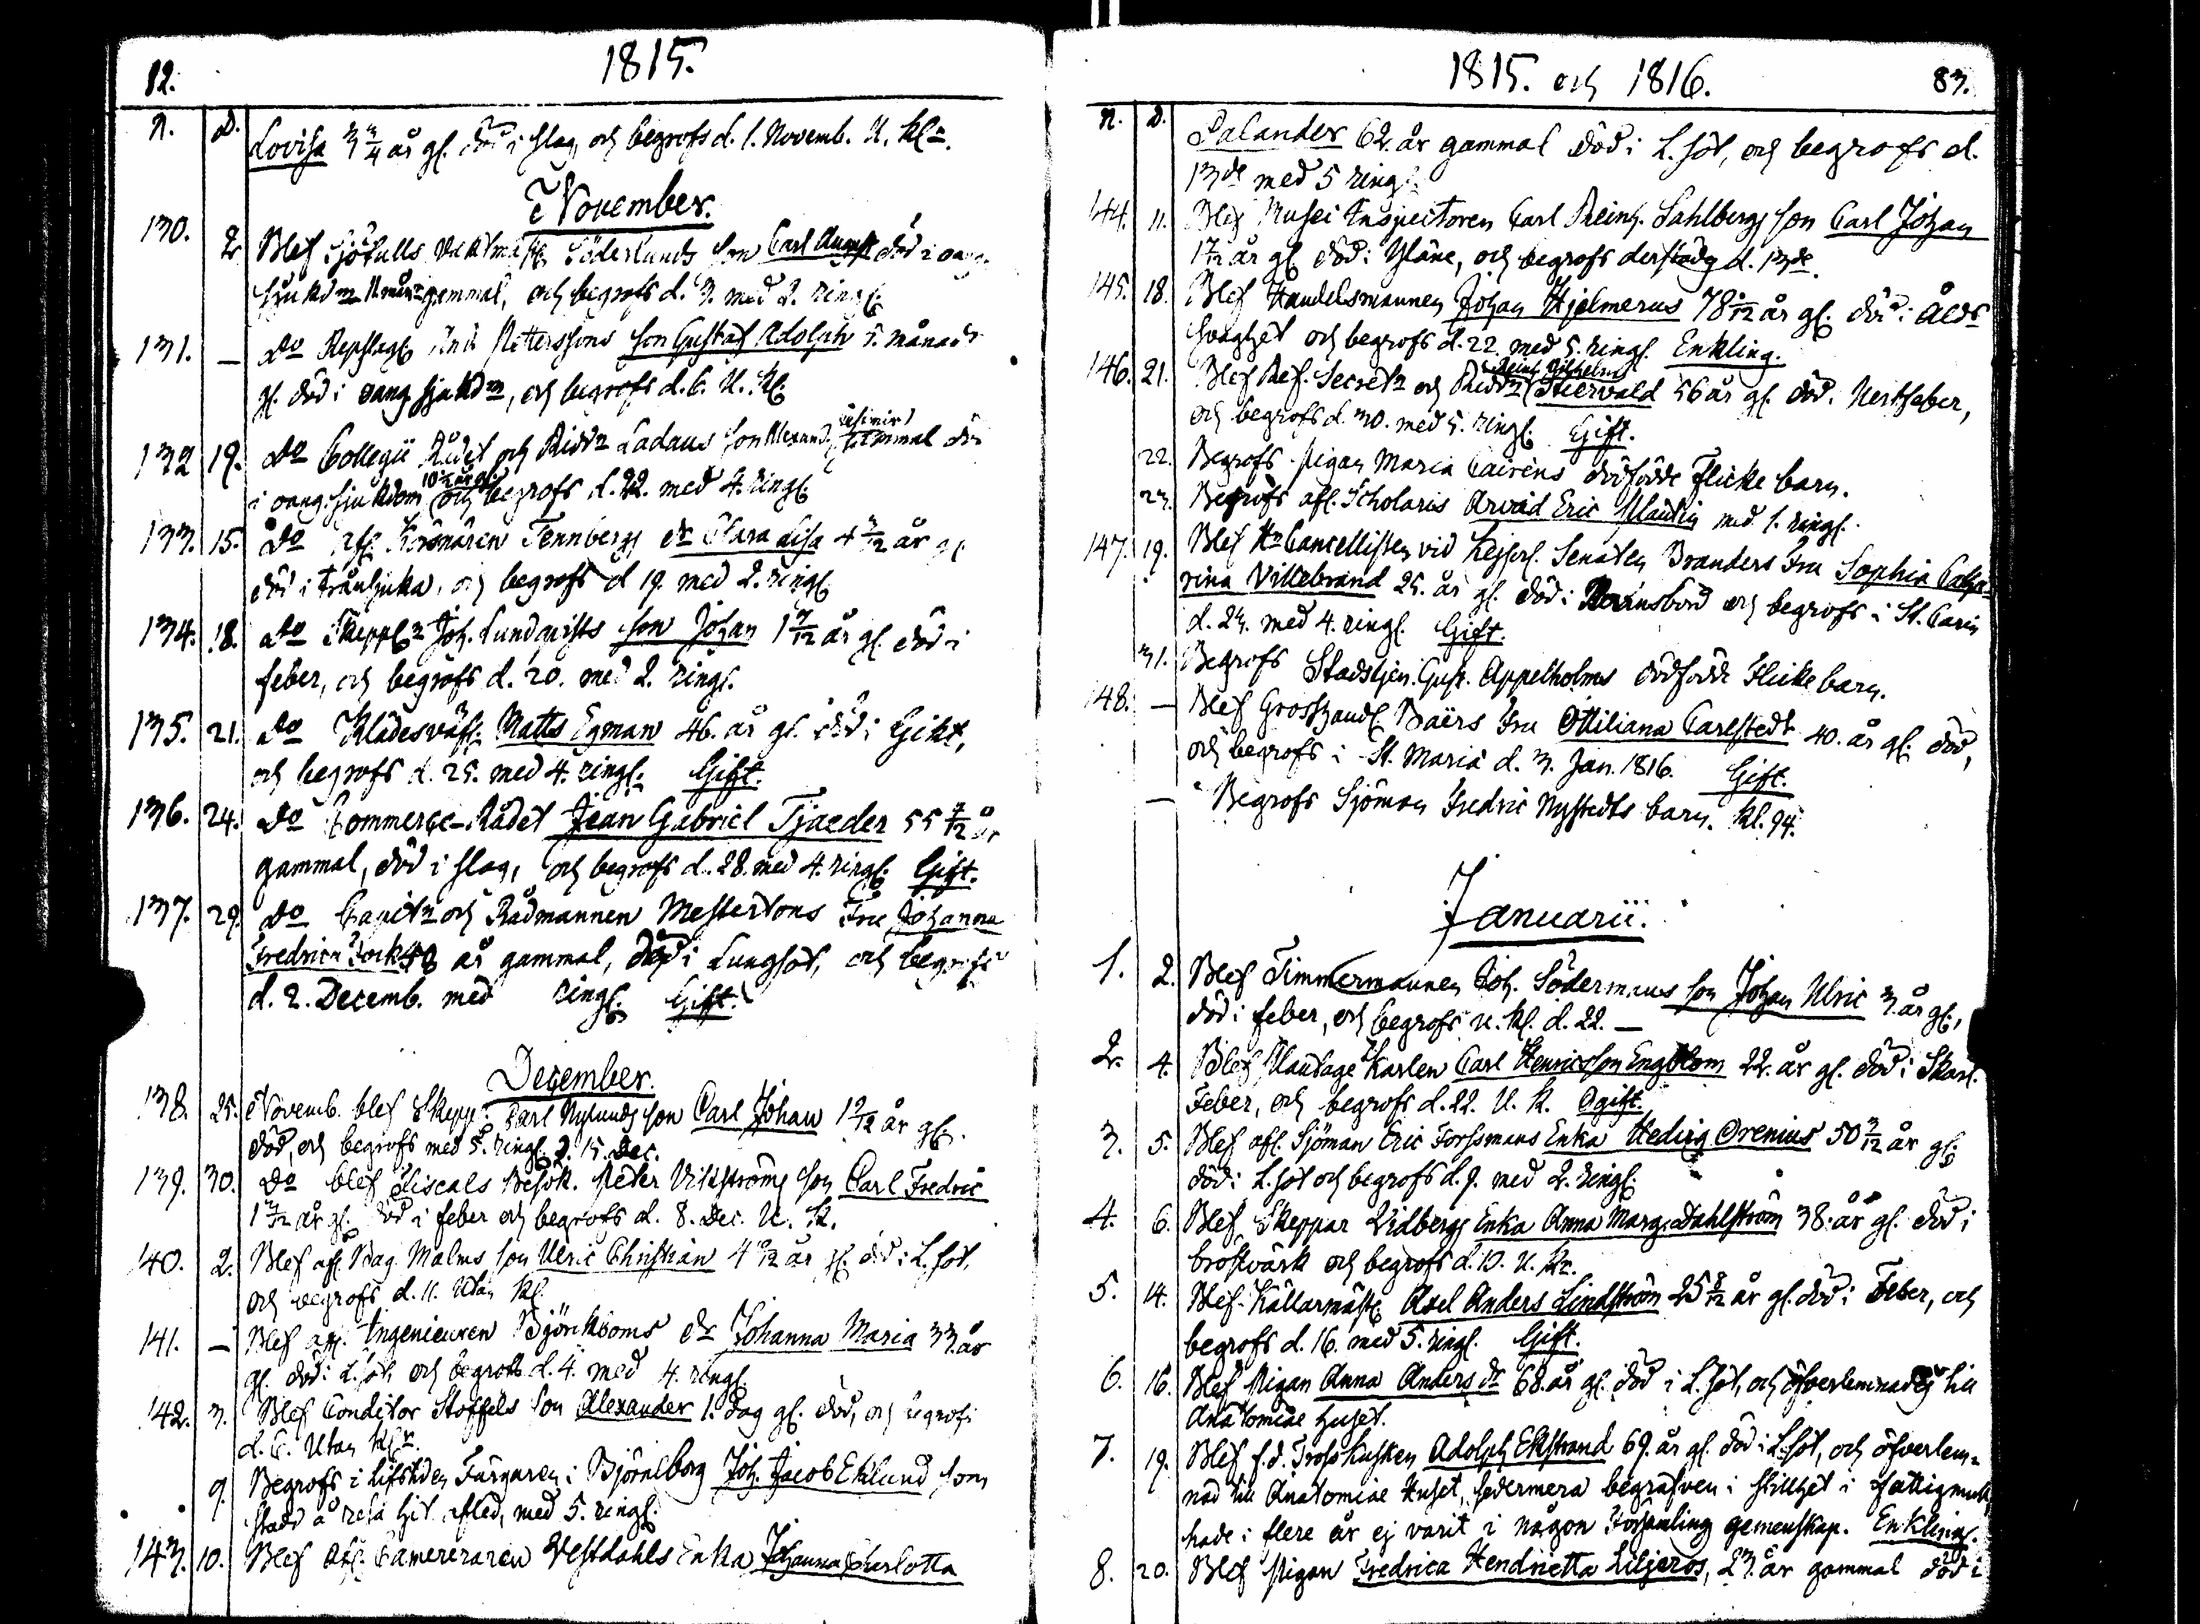 82.
1815.
N. D.
Lovisa 3 3/4 år gl. död i slag, och begrofs d. 1. Novemb. U. Kl.
November.
130. 2 Blef Sjötulls Söderlunds son Carl August död i
sjukdm 11 mån gammal, och begrofs d. 7. med 2. ringl.
131. — Do Repslag. Petterssons son Gustaf Adolph 5. månad
gl. död i oang sjukdm, och begrofs d. 6. U. Kl.
132 19. Do Collegii Rådet och Riddn Ladaus son Alexand. Casimir gammal död
i oang. sjukdom 10 och begrofs d. 22. med 4. ringl.
133. 15. Do afl. Tennbergs dr Clara Lisa 4 /12 år gl
död i och begrofs d 19. med 2. ringl.
134. 18. Do Skeppsr Joh. Lundqvists son Johan 1 /12 år gl. död i
feber, och begrofs d. 20. med 2. ringl.
135. 21. Do Klädesväfv. Matts Egman 46. år gl. död i Gikt,
och begrofs d. 25. med 4. ringl. Gift.
136. 24. Do Commerce-Rådet Jean Gabriel Tjaeder 55 /12 år
gammal, död i slag, och begrofs d. 28. med 4. ringl. Gift.
137. 29. Do Capitn och Rådmannen Mestertons Fru Johanna
Fredrica Fock 48 år gammal, död i Lungsot, och begrofs
d. 2. Decemb. med ringl. Gift.
December.
138. 25. Novemb. blef Skepp. Carl Nylunds son Carl Johan 1 /12 år gl.
död, och begrofs med 5. ringl. d. 15. Dec.
139. 30. Do blef Fiscals Besök. Peter Vikströms son Carl Fredric
1 /12 år gl. död i feber och begrofs d. 8. Dec. U. K.
140. 2. Blef afl. Bag. Malms son Ulric Christian 4 /12 år gl. död i L. sot,
och begrofs d. 11. utan Kl.
141. — Blef afl. Ingenieuren Björkboms dr Johanna Maria 33 år
gl. död i L. sot, och begrofs d. 4. med 4. ringl.
142. 3. Blef Conditor Stoffels son Alexander 1. dag gl. död, och begrofs
d. 6. Utan Kl.
9. Begrofs i lifstiden Färgaren i Björneborg Joh. Jacob Eklund som
å resa hit afled, med 5. ringl.
143. 10. Blef Afl. Camereraren Vestdahls Enka Johanna Charlotta
1815. och 1816. 83.
N. D.
Salander 62. år gammal död i L. sot, och begrofs d.
13de med 5 ringl.
144. 11. Blef Musei Inspectoren Carl Reinh. Sahlbergs son Carl Johan
1 /12 år gl död i Yläne, och begrofs derstädes d. 13de.
145. 18. Blef Handelsmannen Johan Hjelmerus 78 /12 år gl. död i Ålds
svaghet och begrofs d. 22. med 5. ringl. Enkling.
146. 21. Blef Ref. Secretn och Riddn Reinh Wilhelm Stiervald 56 år gl. död. Nerffeber,
och begrofs d. 30. med 5. ringl. Gift.
22. Begrofs Pigan Maria Cairéns dödfödde Flicke barn.
23. Begrofs afl. Scholaris Arvid Eric med 1. ringl.
147. 19. Blef Hr Cancellisten vid Kejserl. Senaten Branders Fru Sophia Catha-
rina Villebrand 25. år gl. död i Barnsbörd och begrofs i St. Carin
d. 23. med 4. ringl. Gift.
31. Begrofs Stadstjen. Gust. Appelholms dödfödde Flicke barn.
148. — Blef Grosshandl. Baërs Fru Ottiliana Carlstedt 40. år gl. död,
och begrofs i St. Maria d. 3. Jan. 1816. Gift.
— Begrofs Sjöman Fredric Nystedts barn. Kl. 94.
Januarii.
1. 2. Blef Timmermannen Joh. Södermans son Johan Ulric 3. år gl.,
död i feber, och begrofs u. Kl. d. 22. —
2. 4. Blef Plantage Karlen Carl Henricsson Engblom 22. år gl. död i Skarl.
Feber, och begrofs d. 22. U. K. Ogift.
3. 5. Blef afl. Sjöman Eric Forssmans Enka Hedvig Orenius 50 /12 år gl.
död i L. sot och begrofs d. 9. med 2. ringl.
4. 6. Blef Skeppar Vidbergs Enka Anna Marg. Dahlström 38. år gl. död i
bröstvärk och begrofs d. 10. U. K.
5. 14. Blef Källarmäst. Axel Anders Lindström 25 8/12 år gl. död i Feber, och
begrofs d. 16. med 5. ringl. Gift.
6. 16. Blef Pigan Anna Anders dr 68. år gl. död i L. sot, och öfverlemnades till
Anatomiae huset.
7. 19. Blef f.d. Trosskusken Adolph Ekstrand 69. år gl. död i L. sot, och öfverlem-
nad till Anatomiae Huset, sedermera begrafven i stillhet i fattigmull
hade i flere år ej varit i någon Församling gemenskap. Enkling.
8. 20. Blef Pigan Fredrica Hendrietta Liljeros, 23 år gammal död i